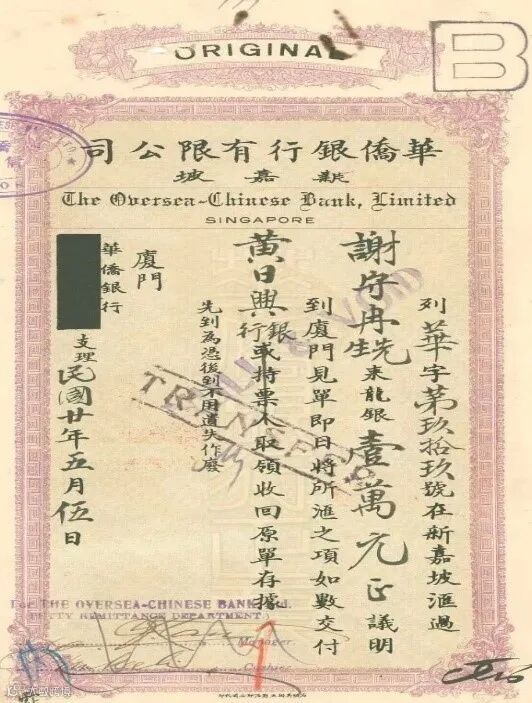 ORIGINAL
B
華僑銀行有限公司
新嘉坡
The Oversea-Chinese Bank, Limited
SINGAPORE
列華字第玖拾玖號在新嘉坡滙過
謝守冉先生來龍銀壹萬元正議明
到廈門見單即日將所滙之項如數交付
黃日興銀行或持票人取領收回原單存據
先到為憑後到不用遺失作廢
廈門
華僑銀行
支理
民國廿年五月伍日
TRANSFER
For THE OVERSEA-CHINESE BANK, Ltd.
PETTY REMITTANCE DEPARTMENT.
Manager
Cashier